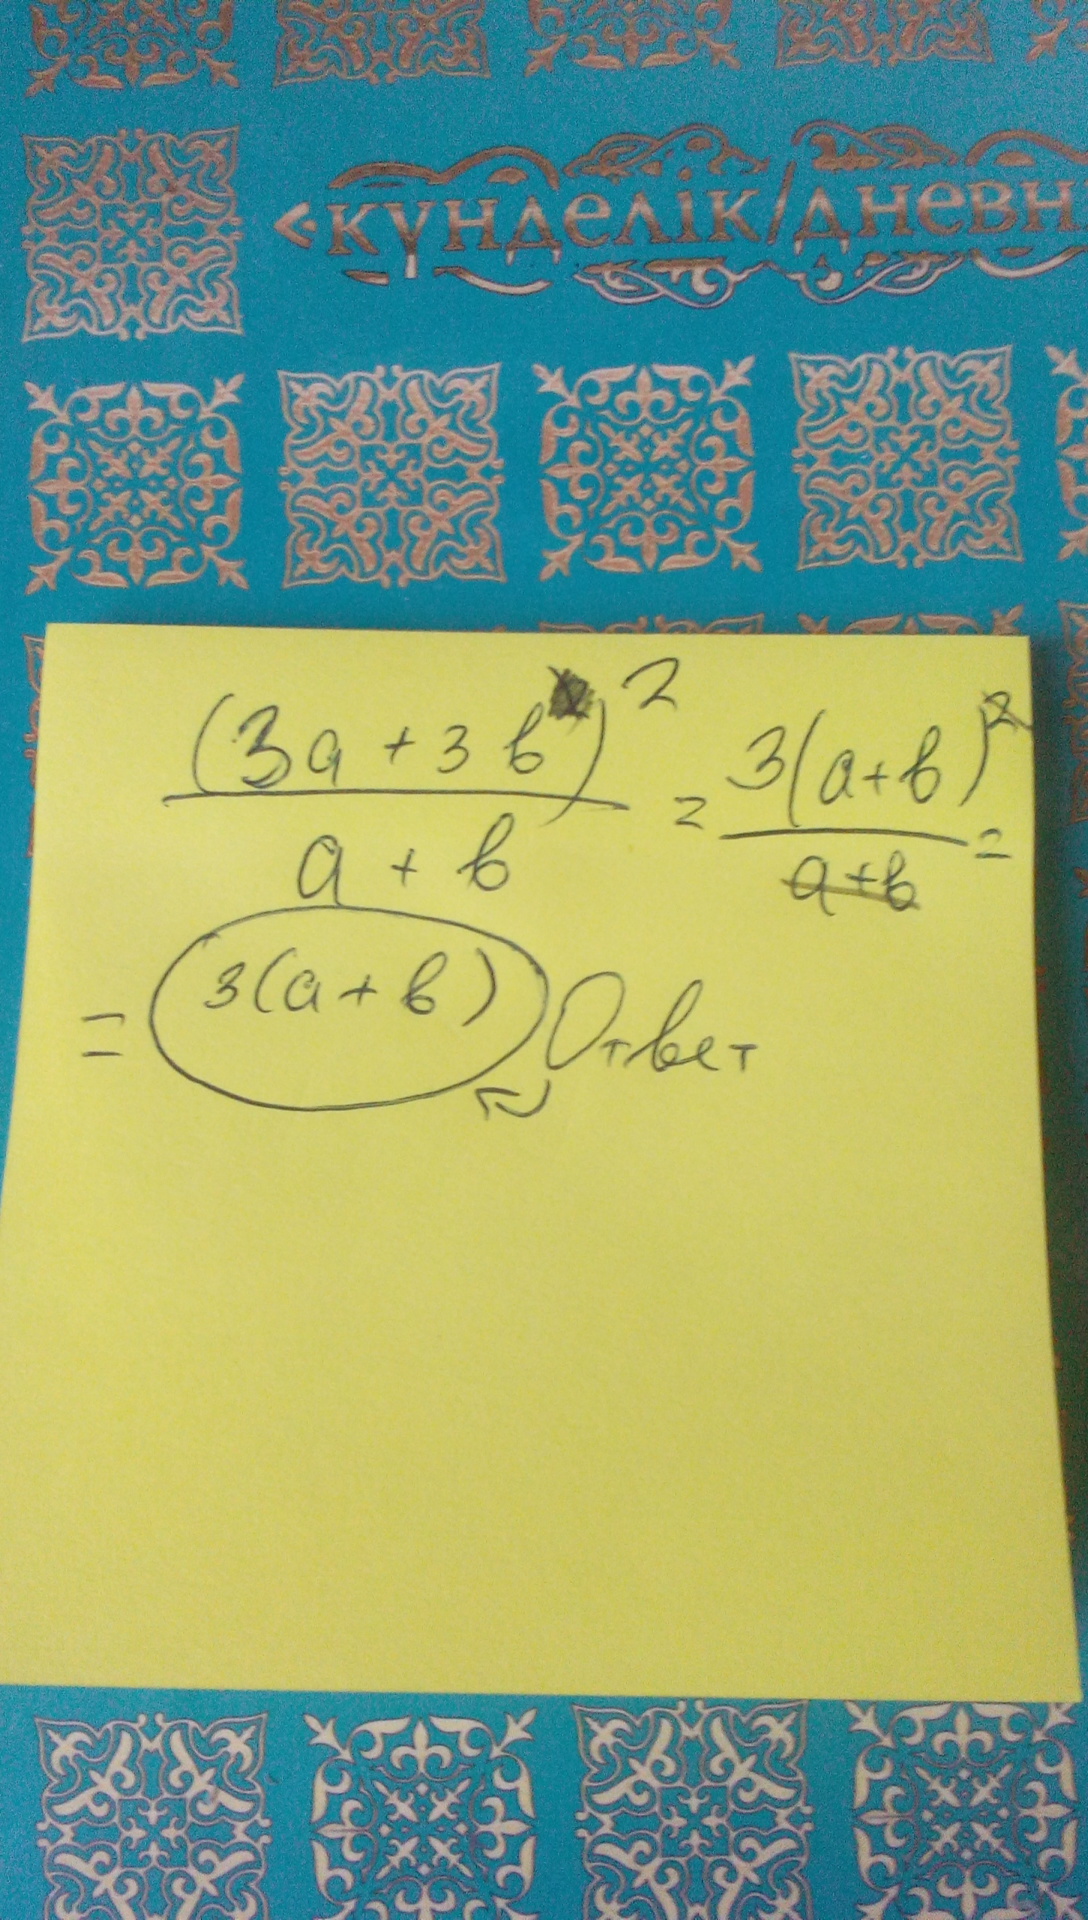 «күнделік/дневн
(3a + 3b)² / a + b = 3(a+b)² / a+b =
= 3(a+b) Ответ